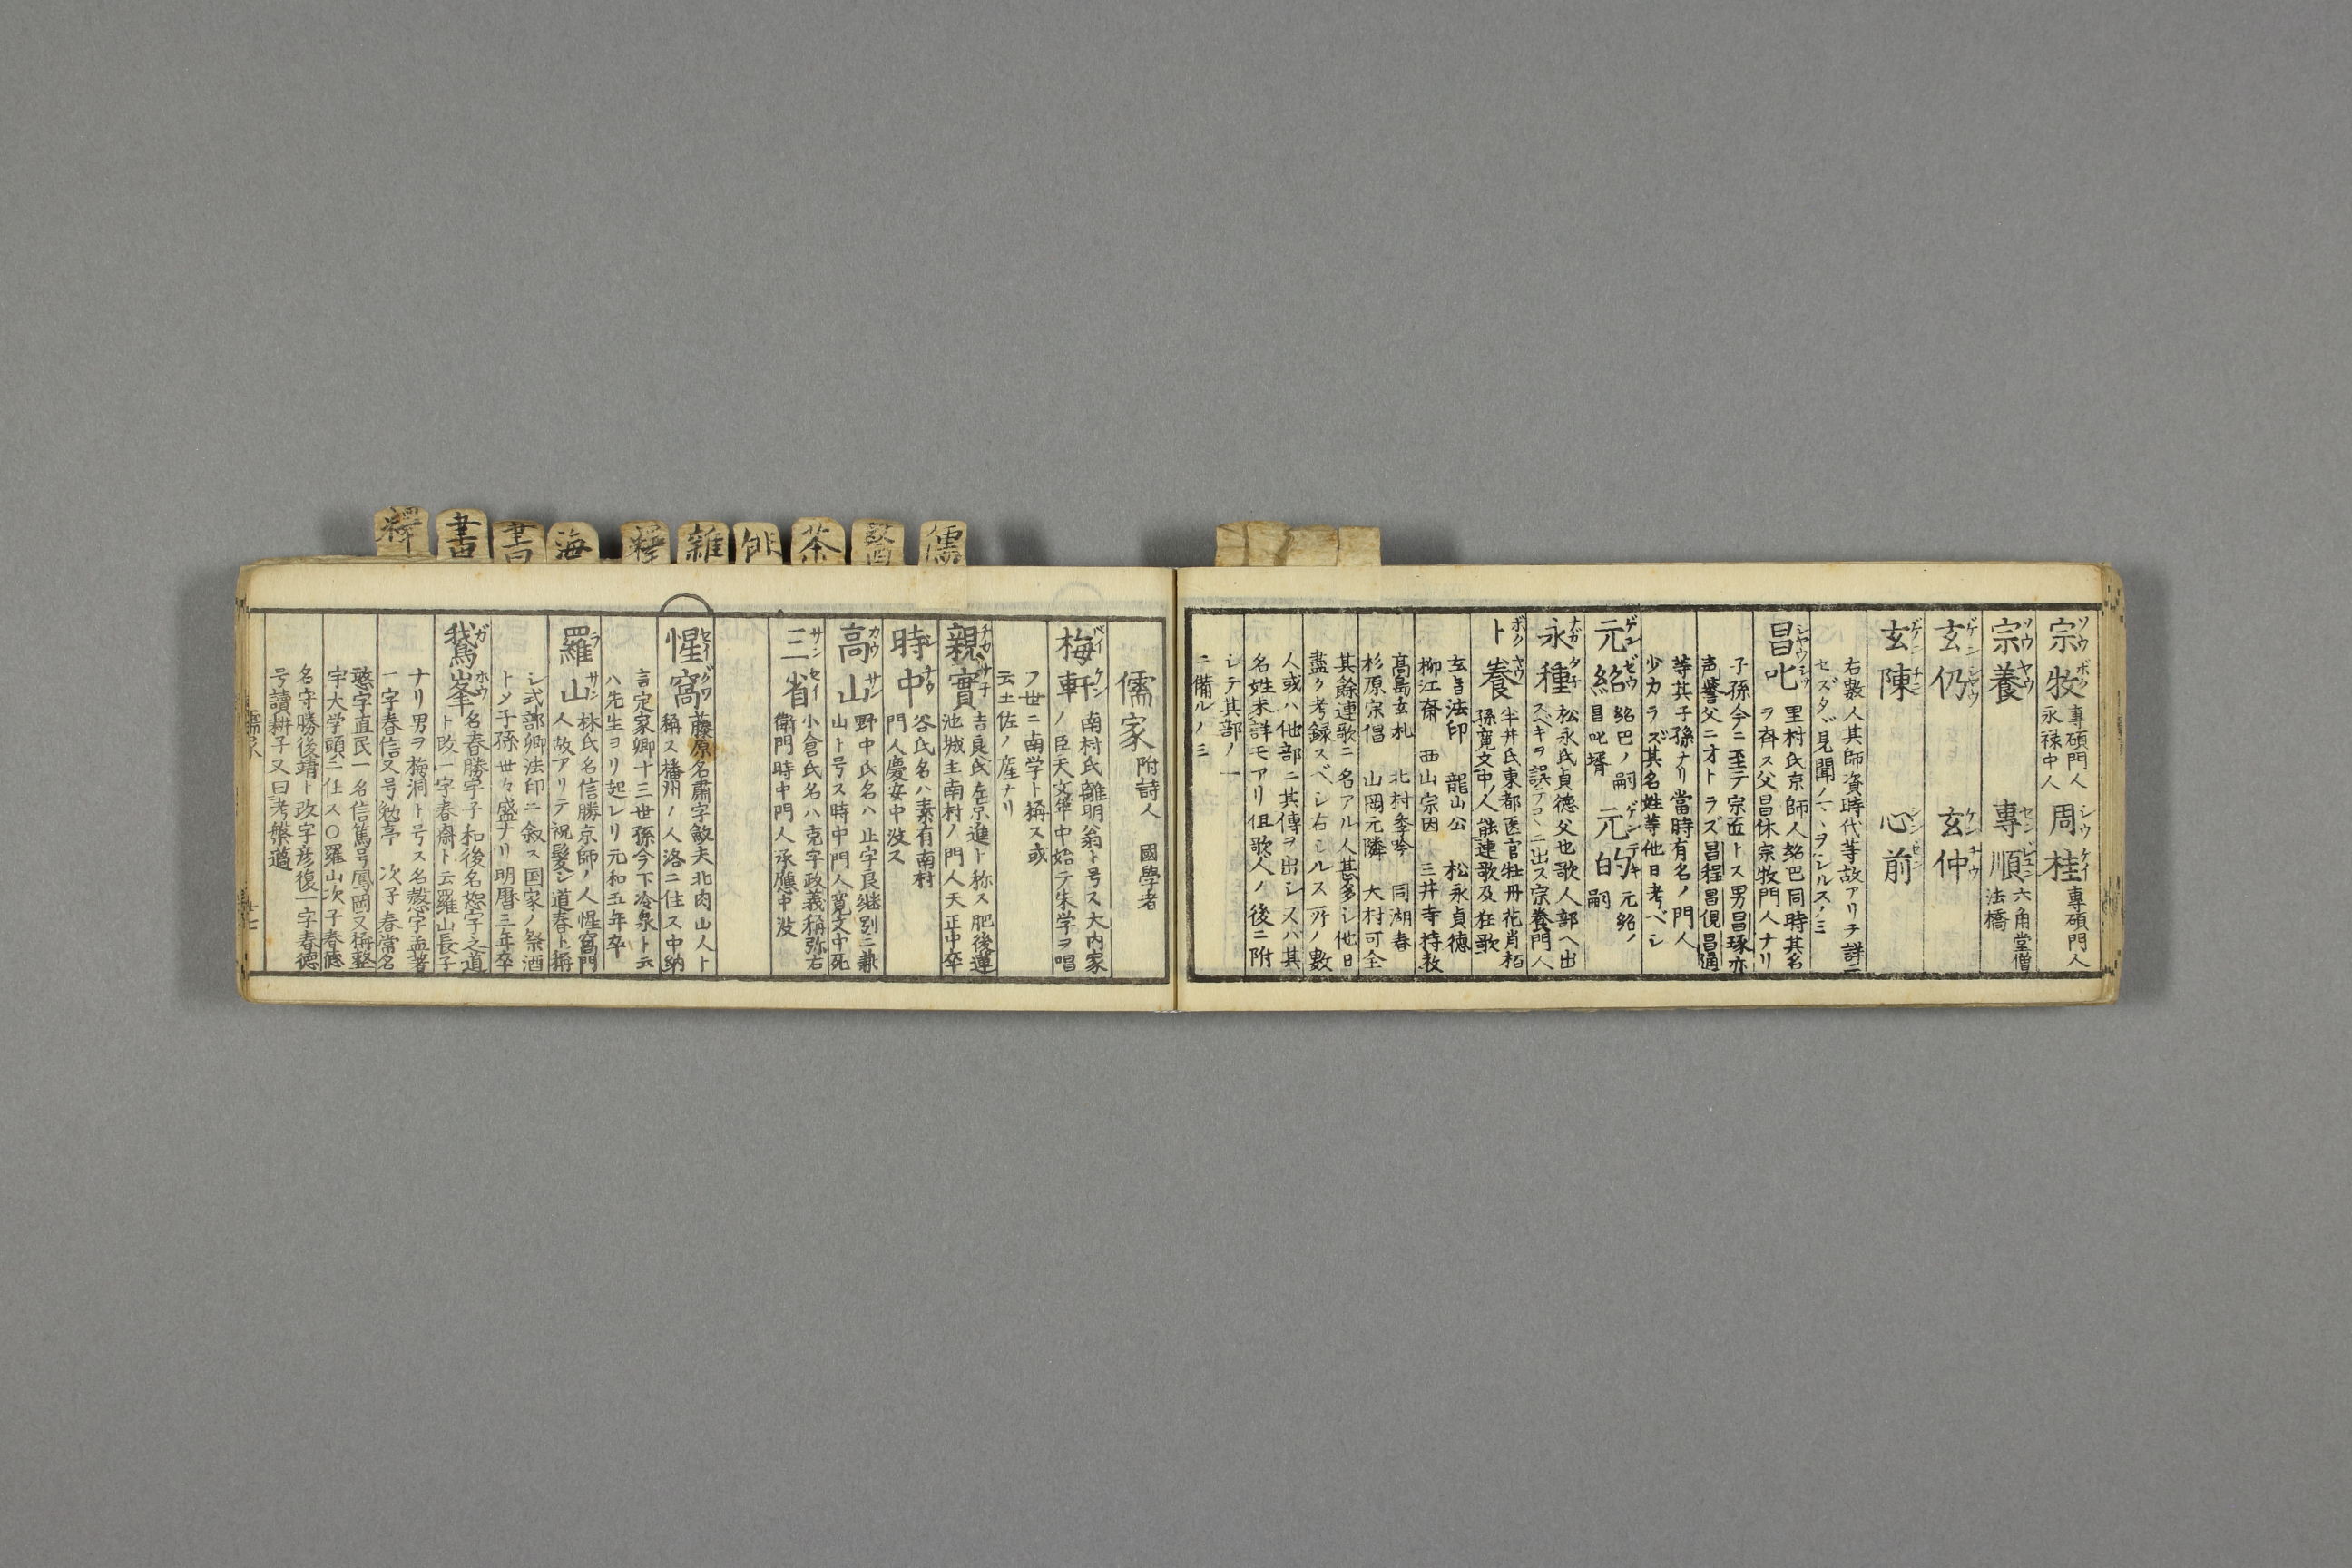 宗牧 ソウボク 專碩門人
永禄中人
周桂 シウケイ 專碩門人
宗養 ソウヤウ
專順 センジュン 六角堂僧
法橋
玄仍 ゲンジヤウ
玄仲 ケンチウ
玄陳 ゲンチン
心前 シンゼン
右數人其師資時代等故アリテ詳ニ
セズタヾ見聞ノマヽヲシルスノミ
昌叱 シヤウシツ 里村氏京師人紹巴同時其名
ヲ斉ス父昌休宗牧門人ナリ
子孫今ニ至テ宗匠トス男昌琢亦
声譽父ニオトラズ昌程昌俔昌通
等其子孫ナリ當時有名ノ門人
少カラズ其名姓等他日考ベシ
元紹 ゲンゼウ 紹巴ノ嗣
昌叱壻
元的 ゲンテキ 元紹ノ
嗣
永種 ナガタネ 松永氏貞德父也歌人部ヘ出
スベキヲ誤テコヽニ出ス宗養門人
卜養 ボクヤウ 半井氏東都医官牡丹花肖栢
孫寛文中ノ人能連歌及狂歌
玄旨法印 龍山公 松永貞德
柳江齋 西山宗因 三井寺持教
髙島玄札 北村季吟 同湖春
杉原宗倡 山岡元隣 大村可全
其餘連歌ニ名アル人甚多シ他日
盡ク考録スベシ右シルス所ノ數
人或ハ他部ニ其傳ヲ出シ又ハ其
名姓未詳モアリ但歌人ノ後ニ附
シテ其部ノ一
ニ備ルノミ
儒 醫 茶 俳 雜 釋 海 書 畫 釋
儒家 附詩人 國學者
梅軒 バイケン 南村氏離明翁ト号ス大内家
ノ臣天文年中始テ朱学ヲ唱
フ世ニ南学ト稱ス或
云土佐ノ産ナリ
親實 チカサネ 吉良氏左京進ト称ス肥後蓮
池城主南村ノ門人天正中卒
時中 ジチウ 谷氏名ハ素有南村
門人慶安中沒ス
高山 カウサン 野中氏名ハ止字良継別ニ兼
山ト号ス時中門人寛文中死
三省 サンセイ 小倉氏名ハ克字政義稱弥右
衛門時中門人承應中沒
惺窩 セイグワ 藤原名肅字斂夫北肉山人ト
稱ス播州ノ人洛ニ住ス中納
言定家卿十二世孫今下冷泉ト云
ハ先生ヨリ起レリ元和五年卒
羅山 ラサン 林氏名信勝京師ノ人惺窩門
人故アリテ祝髪シ道春ト稱
シ式部卿法印ニ叙ス国家ノ祭酒
トメ子孫世々盛ナリ明暦三年卒
鵞峯 ガホウ 名春勝字子和後名恕字之道
ト改一字春齋ト云羅山長子
ナリ男ヲ梅洞ト号ス名愨字孟著
一字春信又号勉亭 次子春常名
戇字直民一名信篤号鳳岡又稱整
宇大学頭ニ任ス〇羅山次子春德
名守勝後靖ト改字彦復一字春德
号讀耕子又曰考槃薖
儒家